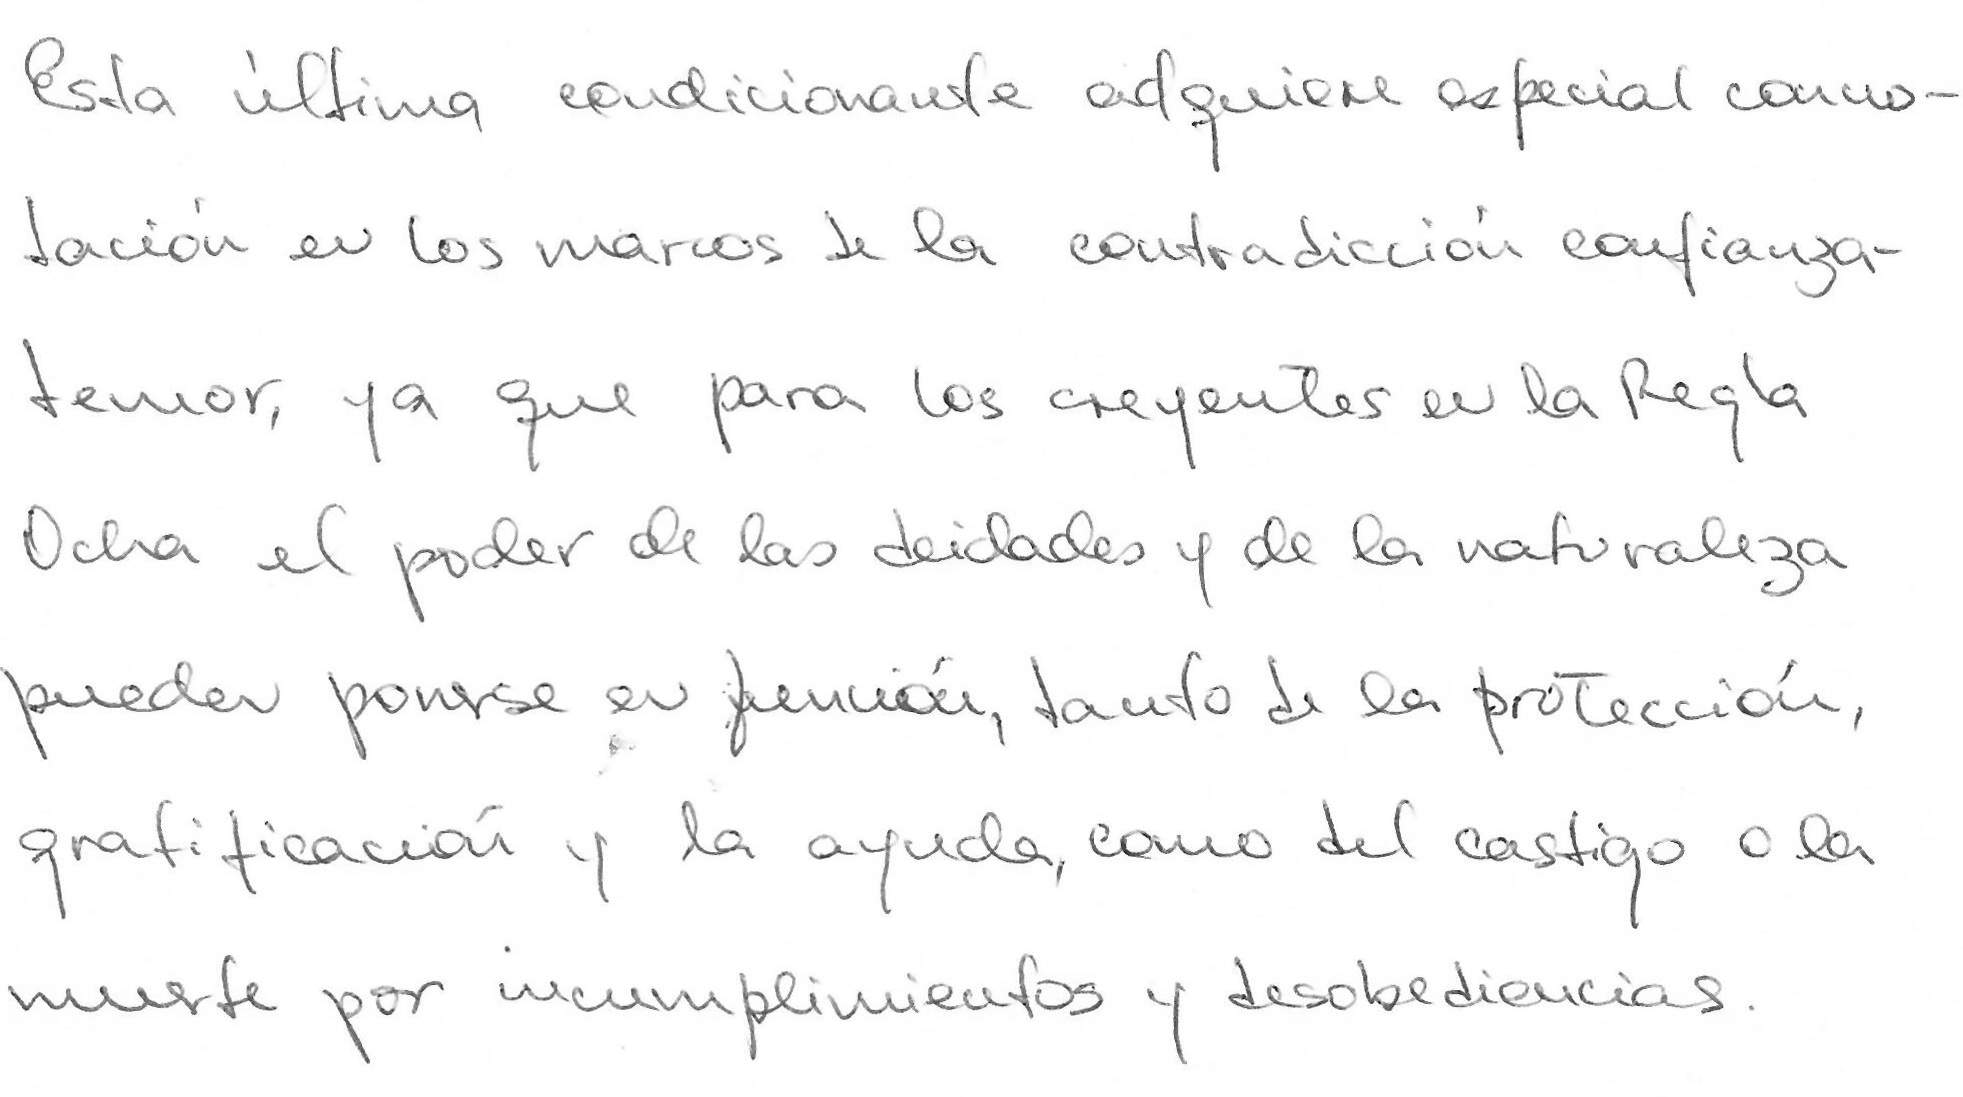 Esta última condicionante adquiere especial conno-
tación en los marcos de la contradicción confianza-
temor, ya que para los creyentes en la Regla
Ocha el poder de las deidades y de la naturaleza
pueden ponerse en función, tanto de la protección,
gratificación y la ayuda, como del castigo o la
muerte por incumplimientos y desobediencias.